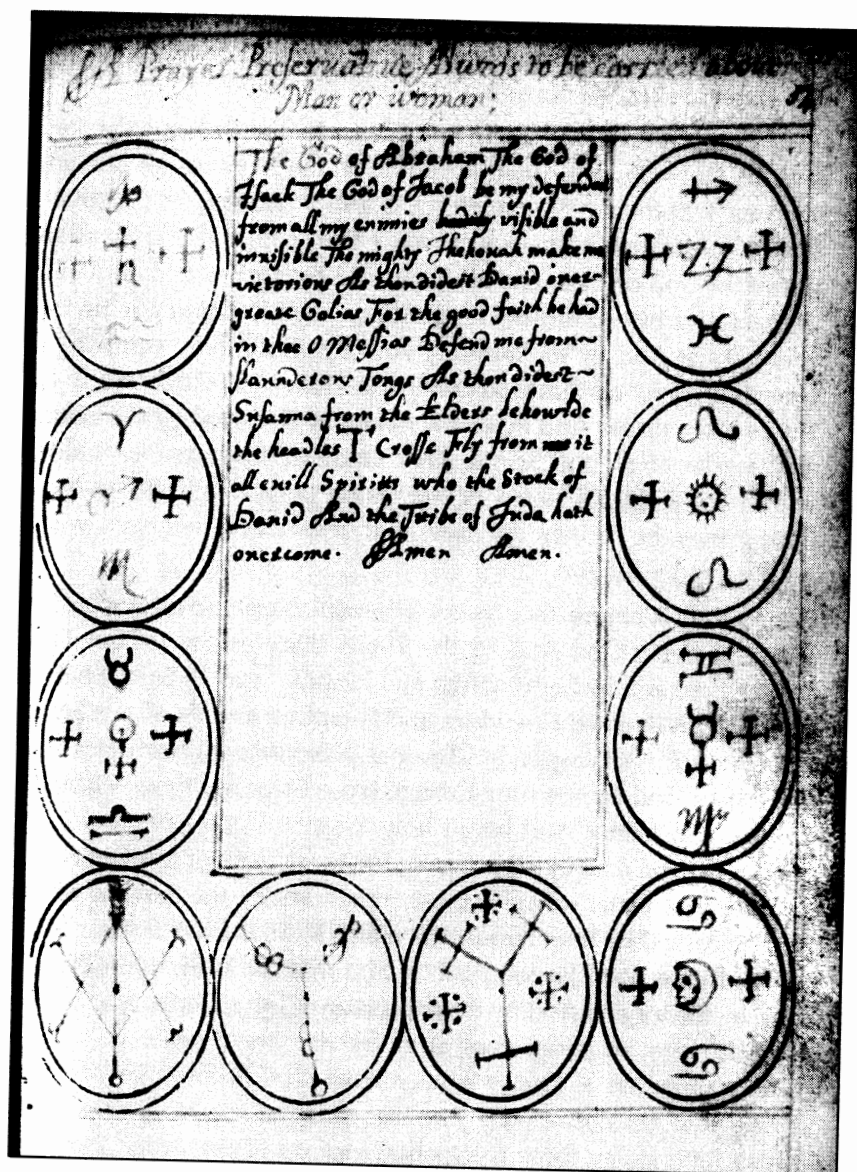 A Prayer Preseruatiue Allwais to be carried about
Man or woman;
The God of Abraham The God of
Isack The God of Jacob be my defendat
from all my enimies visible and
inuisible The mighty Jhehouah make me
victorious As thou didest Dauid ouer
greate Golias For the good faith he had
in thee O Messias Defend me from
slaunderous Tongs As thou didest
Susanna from the Elders behoulde
the headles T Crosse Fly from it
all euill Spiritts who the Stock of
Dauid And the Tribe of Juda hath
ouercome. Amen Amen.